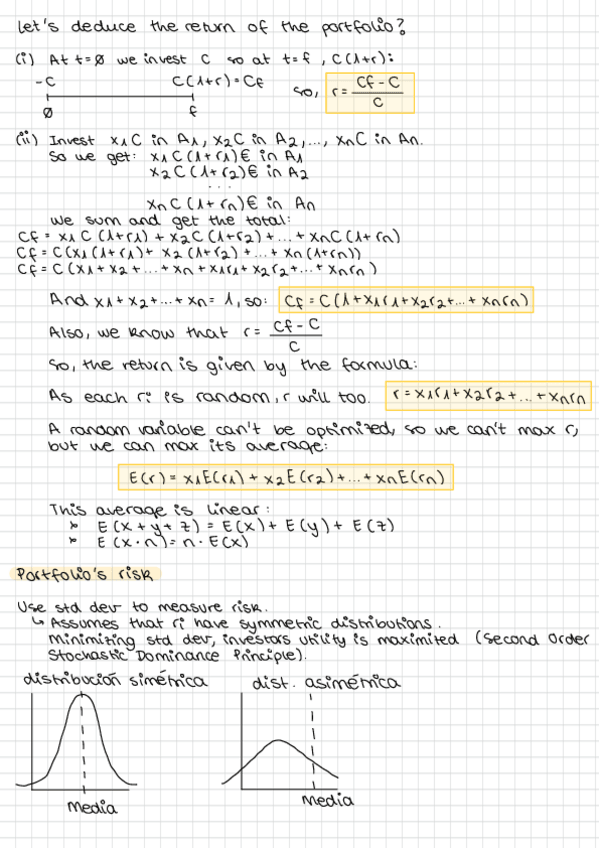 Let's deduce the return of the portfolio?
(i) At t=0 we invest C so at t=f, C(1+r):
-C C(1+r)=Cf
so, r = (Cf-C)/C
0 f
(ii) Invest x1C in A1, x2C in A2,..., xnC in An.
So we get: x1C(1+r1)€ in A1
x2C(1+r2)€ in A2
...
xnC(1+rn)€ in An
We sum and get the total:
Cf = x1C(1+r1) + x2C(1+r2) +...+ xnC(1+rn)
Cf = C(x1(1+r1) + x2(1+r2) +...+ xn(1+rn))
Cf = C(x1+x2+...+xn+x1r1+x2r2+...+xnrn)
And x1+x2+...+xn=1, so: Cf = C(1+x1r1+x2r2+...+xnrn)
Also, we know that r = (Cf-C)/C
So, the return is given by the formula:
As each ri is random, r will too. r=x1r1+x2r2+...+xnrn
A random variable can't be optimized, so we can't max r,
but we can max its average:
E(r) = x1E(r1) + x2E(r2)+...+xnE(rn)
This average is linear:
» E(x+y+z) = E(x)+E(y)+E(z)
» E(x·n)=n·E(x)
Portfolio's risk
Use std dev to measure risk.
↳ Assumes that ri have symmetric distributions.
Minimizing std dev, investors utility is maximited (Second Order
Stochastic Dominance Principle).
distribución simétrica dist. asimétrica
Media Media